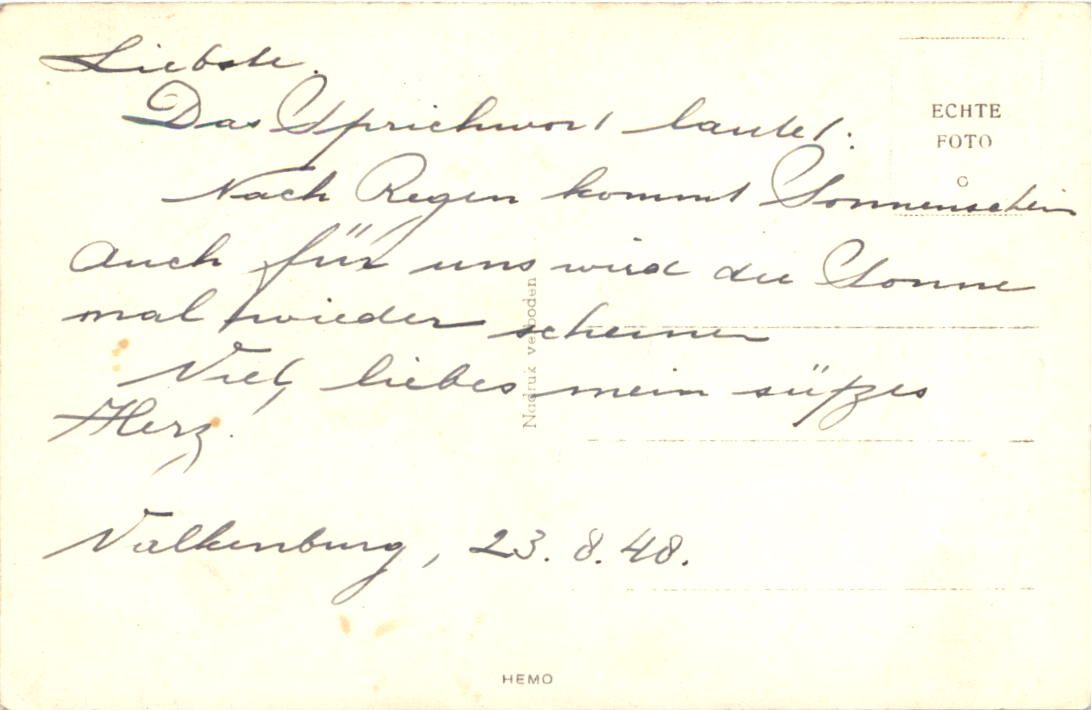 Liebste.
Das Sprichwort lautet:
Nach Regen kommt Sonnenschein
Auch für uns wird die Sonne
mal wieder scheinen
Viel, liebes mein süßes
Herz.
Valkenburg, 23.8.48.
ECHTE
FOTO
G
Nadruk verboden
HEMO